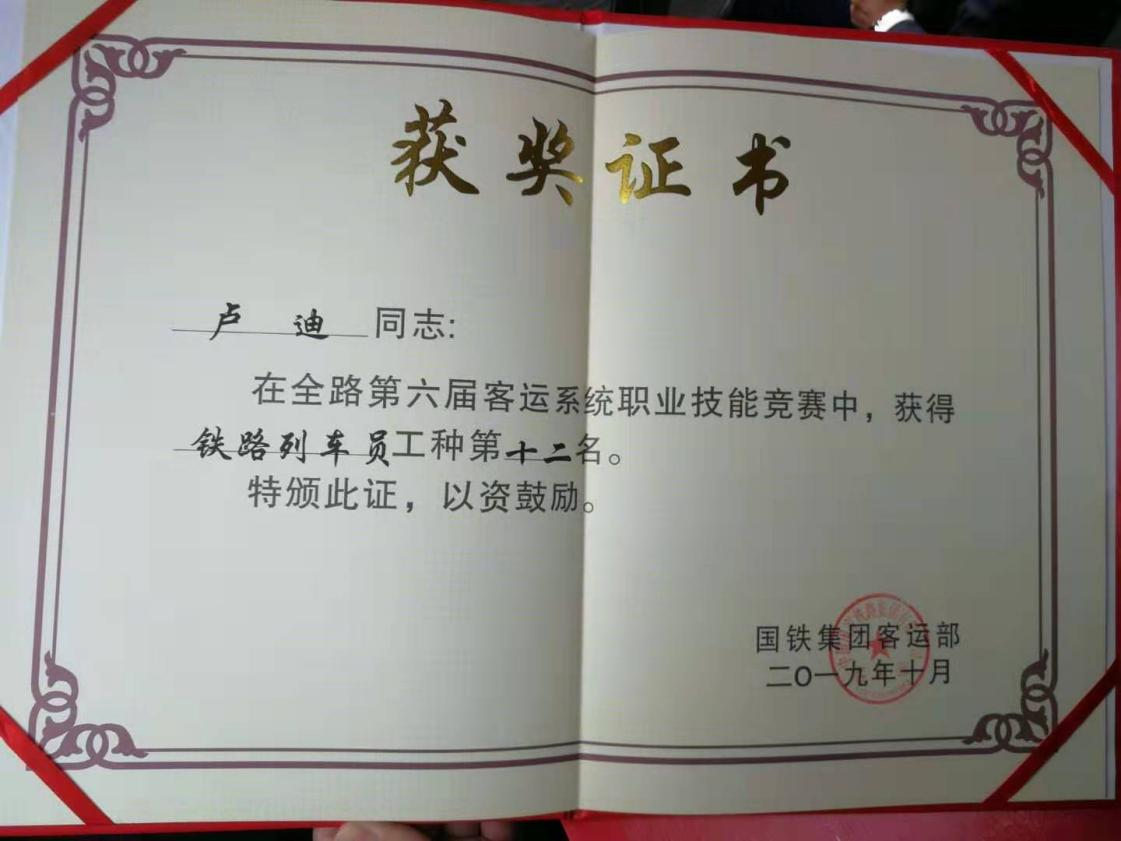 获奖证书
卢迪同志:
在全路第六届客运系统职业技能竞赛中，获得
铁路列车员工种第十二名。
特颁此证，以资鼓励。
国铁集团客运部
二〇一九年十月